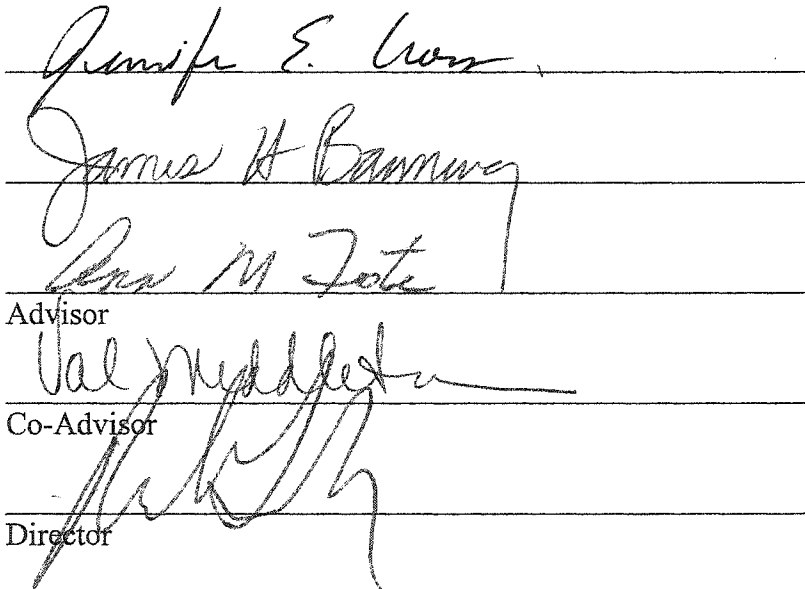 Jennifer E. Cross
James H Banning
M Foote
Advisor
Val Middleton
Co-Advisor
Director